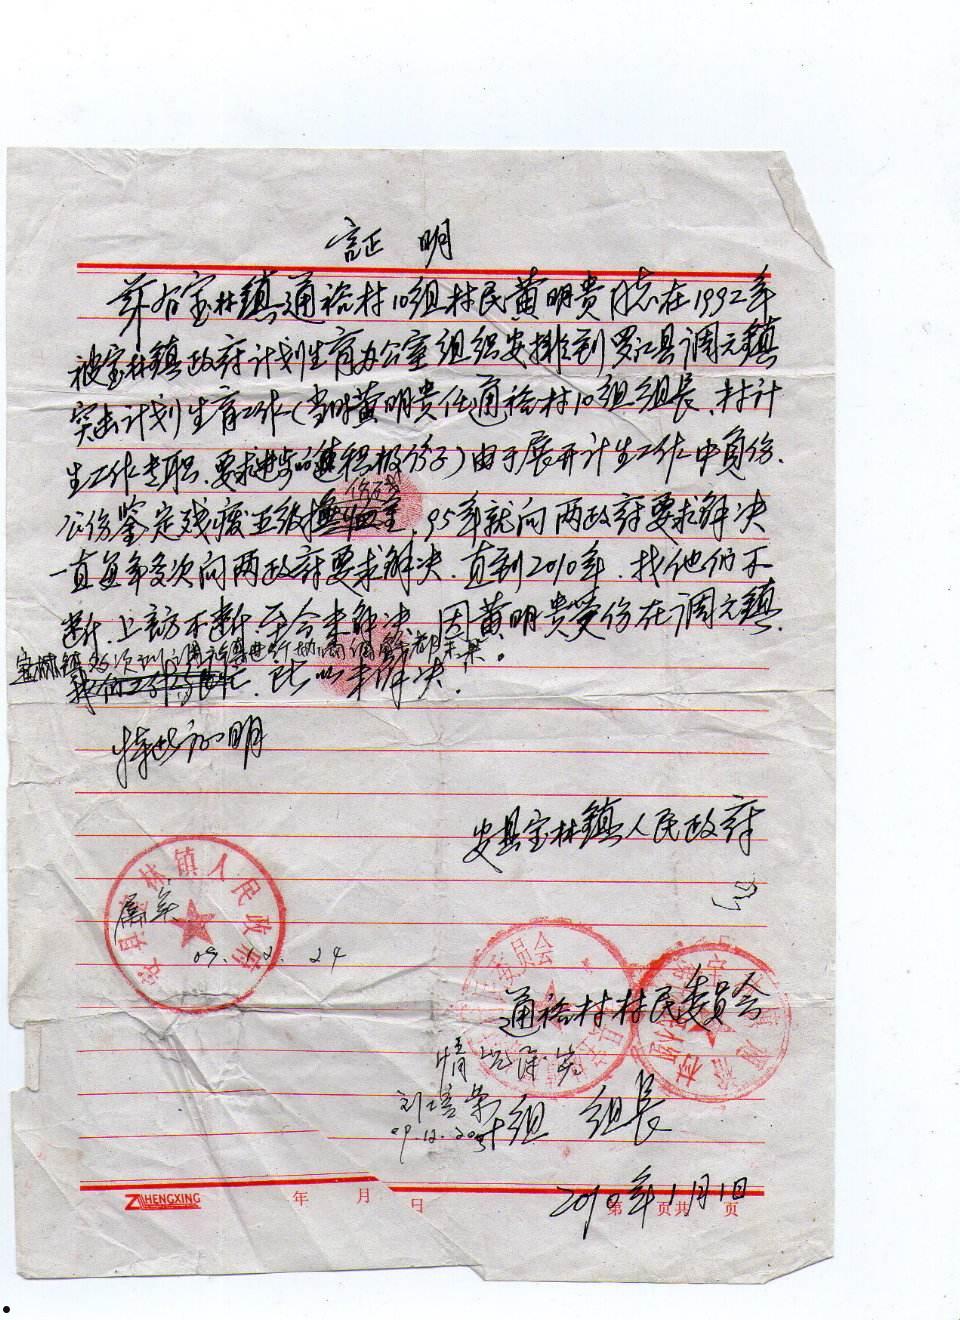 証 明
兹有宝林鎮通裕村10组村民黄明贵同志在1992年
被宝林鎮政府计划生育办公室组织安排到罗江县调元鎮
突击计划生育工作(当时黄明贵任通裕村10组组长、村计
生工作专职、要求进步的积极份子)由于展开计生工作中负伤、
伤残
公伤鉴定残废五级 95年就向两政府要求解决
一直每年多次向两政府要求解决.直到2010年.找他们不
断.上访不断.至今未解决.因黄明贵受伤在调元鎮.
宝林鎮多次到调元鎮进行协商调解都未果.
此以未解决.
特此证明
安县宝林鎮人民政府
安县宝林镇人民政府
属实
09.12.24
通裕村村民委员会
情况属实
刘
09.12.20
十组 组长
2010年1月1日
ZHENGXING 年 月 日 第 页共 页